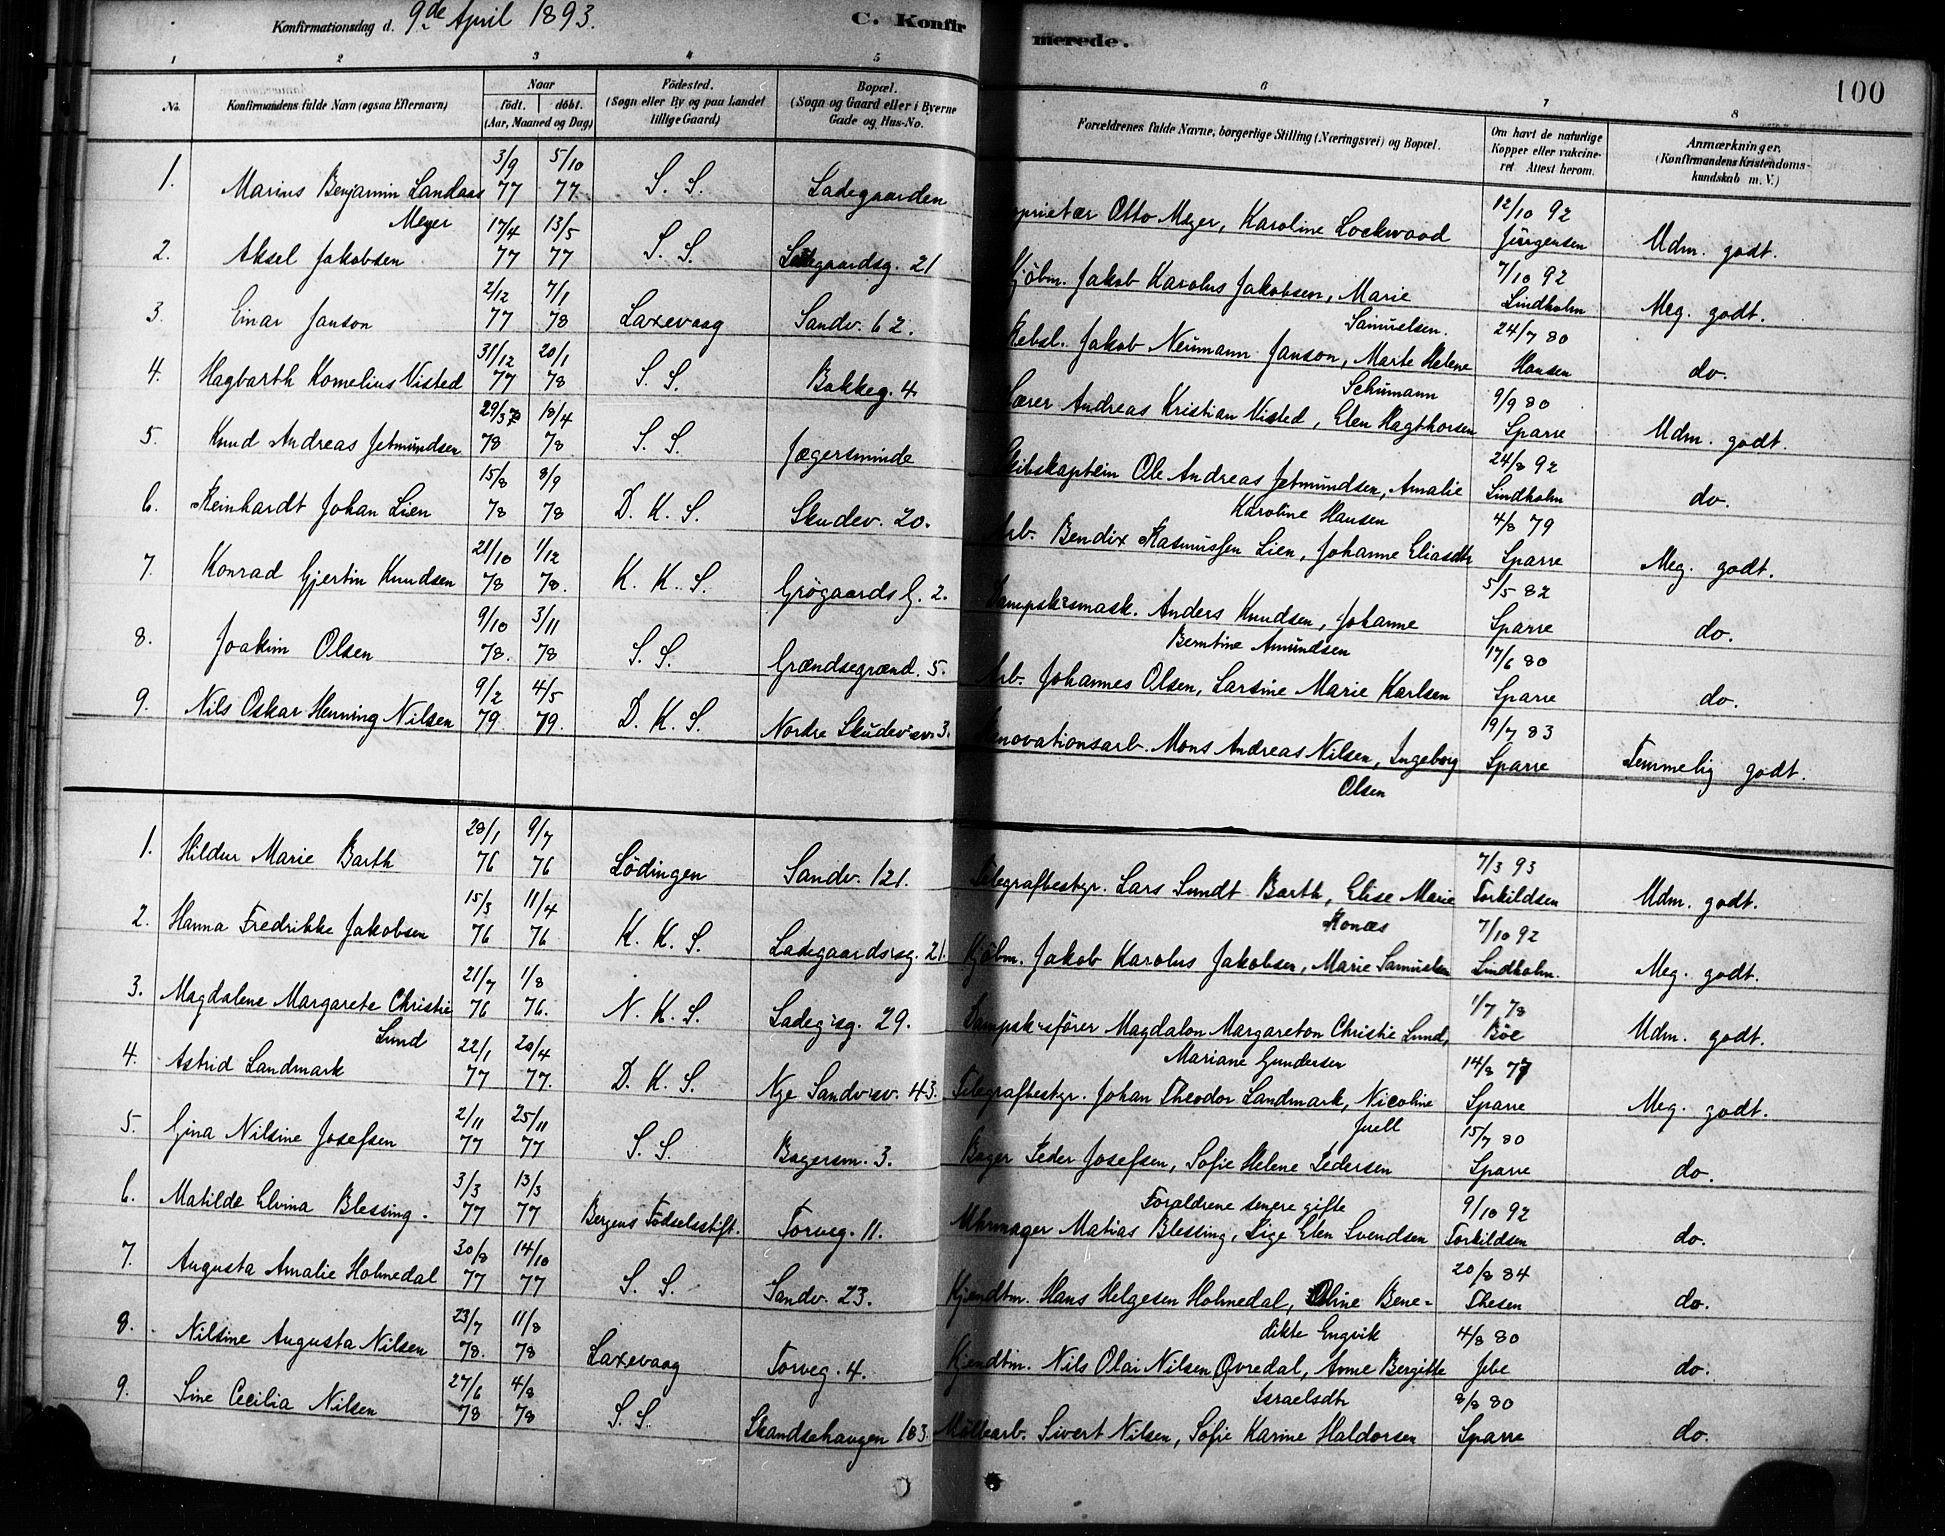 Konfirmationsdag d. 9de April 1893. C. Konfirmerede. 100
1 2 3 4 5 6 7 8
No. Konfirmandens fulde Navn (ogsaa Efternavn) Naar født. døbt. (Aar, Maaned og Dag) Födested. (Sogn eller By og paa Landet tillige Gaard) Bopæl. (Sogn og Gaard eller i Byerne Gade og Hus-No. Forældrenes fulde Navne, borgerlige Stilling (Næringsvei) og Bopæl. Om havt de naturlige Kopper eller vakcineret Attest herom. Anmærkninger. (Konfirmandens Kristendomskundskab m. V.)
1. Marius Benjamin Landaas Meyer 3/9 77 5/10 77 S. S. Ladegaarden Otto Meyer, Karoline Lockwood 12/10 92 Jürgensen Udm. godt.
2. Aksel Jakobsen 17/4 77 13/5 77 S. S. Ladegaardsg. 21 Kjöbm. Jakob Karolus Jakobsen, Marie Samuelsen. 7/10 92 Lindholm Meg. godt.
3. Einar Janson 2/12 77 7/1 78 Laxevaag Sandv. 62. Rebsl. Jakob Neumann Janson, Marte Helene Schumann 24/7 80 Hansen do.
4. Hagbarth Kornelius Visted 31/12 77 20/1 78 S. S. Bakkeg. 4. Lærer Andreas Kristian Visted, Elen Hagthorsen 9/9 80 Sparre Udm. godt.
5. Knud Andreas Jetmundsen 29/3 78 18/4 78 S. S. Jægersminde Skibskaptein Ole Andreas Jetmundsen, Amalie Karoline Hansen 24/8 92 Lindholm do.
6. Reinhardt Johan Lien 15/8 78 8/9 78 D. K. S. Skudev. 20. Arb. Bendix Rasmussen Lien, Johanne Eliasdtr 4/8 79 Sparre Meg. godt.
7. Konrad Gjertin Knudsen 21/10 78 1/12 78. K. K. S. Grøgaards G. 2. Dampsk:smask. Anders Knudsen, Johanne Berntine Amundsen 5/5 82 Sparre do.
8. Joakim Olsen 9/10 78. 3/11 78 S. S. Grændsegrænd. 5. Arb. Johannes Olsen, Larsine Marie Karlsen 17/6 80 Sparre do.
9. Nils Oskar Henning Nilsen 9/2 79. 4/5 79. D. K. S. Nordre Skudev:sv. 3. Renovationsarb. Mons Andreas Nilsen, Ingeborg Olsen 19/7 83 Sparre Temmelig godt.
1. Hildur Marie Barth 28/1 76 9/7 76 Lödingen Sandv. 121. Telegrafbestyr. Lars Sundt Barth, Elise Marie Ronæs 7/3 93 Torkildsen Udm. godt.
2. Hanna Fredrikke Jakobsen 15/3 76 11/4 76 K. K. S. Ladegaards:sg. 21. Kjöbm. Jakob Karolus Jakobsen, Marie Samuelsen 7/10 92 Lindholm. Meg. godt.
3. Magdalene Margarete Christie Lund 21/7 76 1/8 76. N. K. S. Ladeg:sg. 29. Dampsk:sfører Magdalon Margareton Christie Lund, Mariane Gundersen 1/7 78 Böe Udm. godt.
4. Astrid Landmark 22/1 77 20/4 77. D. K. S. Nye Sandv:sv. 43. Telegrafbestyr. Johan Theodor Landmark, Nicoline Juell 14/8 77 Sparre Meg. godt.
5. Gina Nilsine Josefsen 2/11 77 25/11 77 S. S. Bagersm. 3. Bager Peder Josefsen, Sofie Helene Pedersen 15/7 80 Sparre do.
6. Matilde Elvina Blessing. 3/3 77 13/3 77 Bergens Födselsstift. Torveg. 11. Forældrene senere gifte Uhrmager Matias Blessing, Pige Elen Svendsen 9/10 92 Torkildsen do.
7. Augusta Amalie Holmedal 30/8 77 14/10 77 S. S. Sandv. 23. Kjendtm. Hans Helgesen Holmedal, Oline Benedikte Engvik 20/8 84 Thesen do.
8. Nilsine Augusta Nilsen 23/7 78. 11/8 78 Laxevaag Torveg. 4. Kjendtm. Nils Olai Nilsen Øvredal, Anne Bergitte Israelsdtr 4/8 80 Jebe do.
9. Sine Cecilia Nilsen 27/6 78 4/8 78 S. S. Skandsehaugen 183. Möllearb. Sivert Nilsen, Sofie Karine Haldorsen 8/8 80 Sparre do.